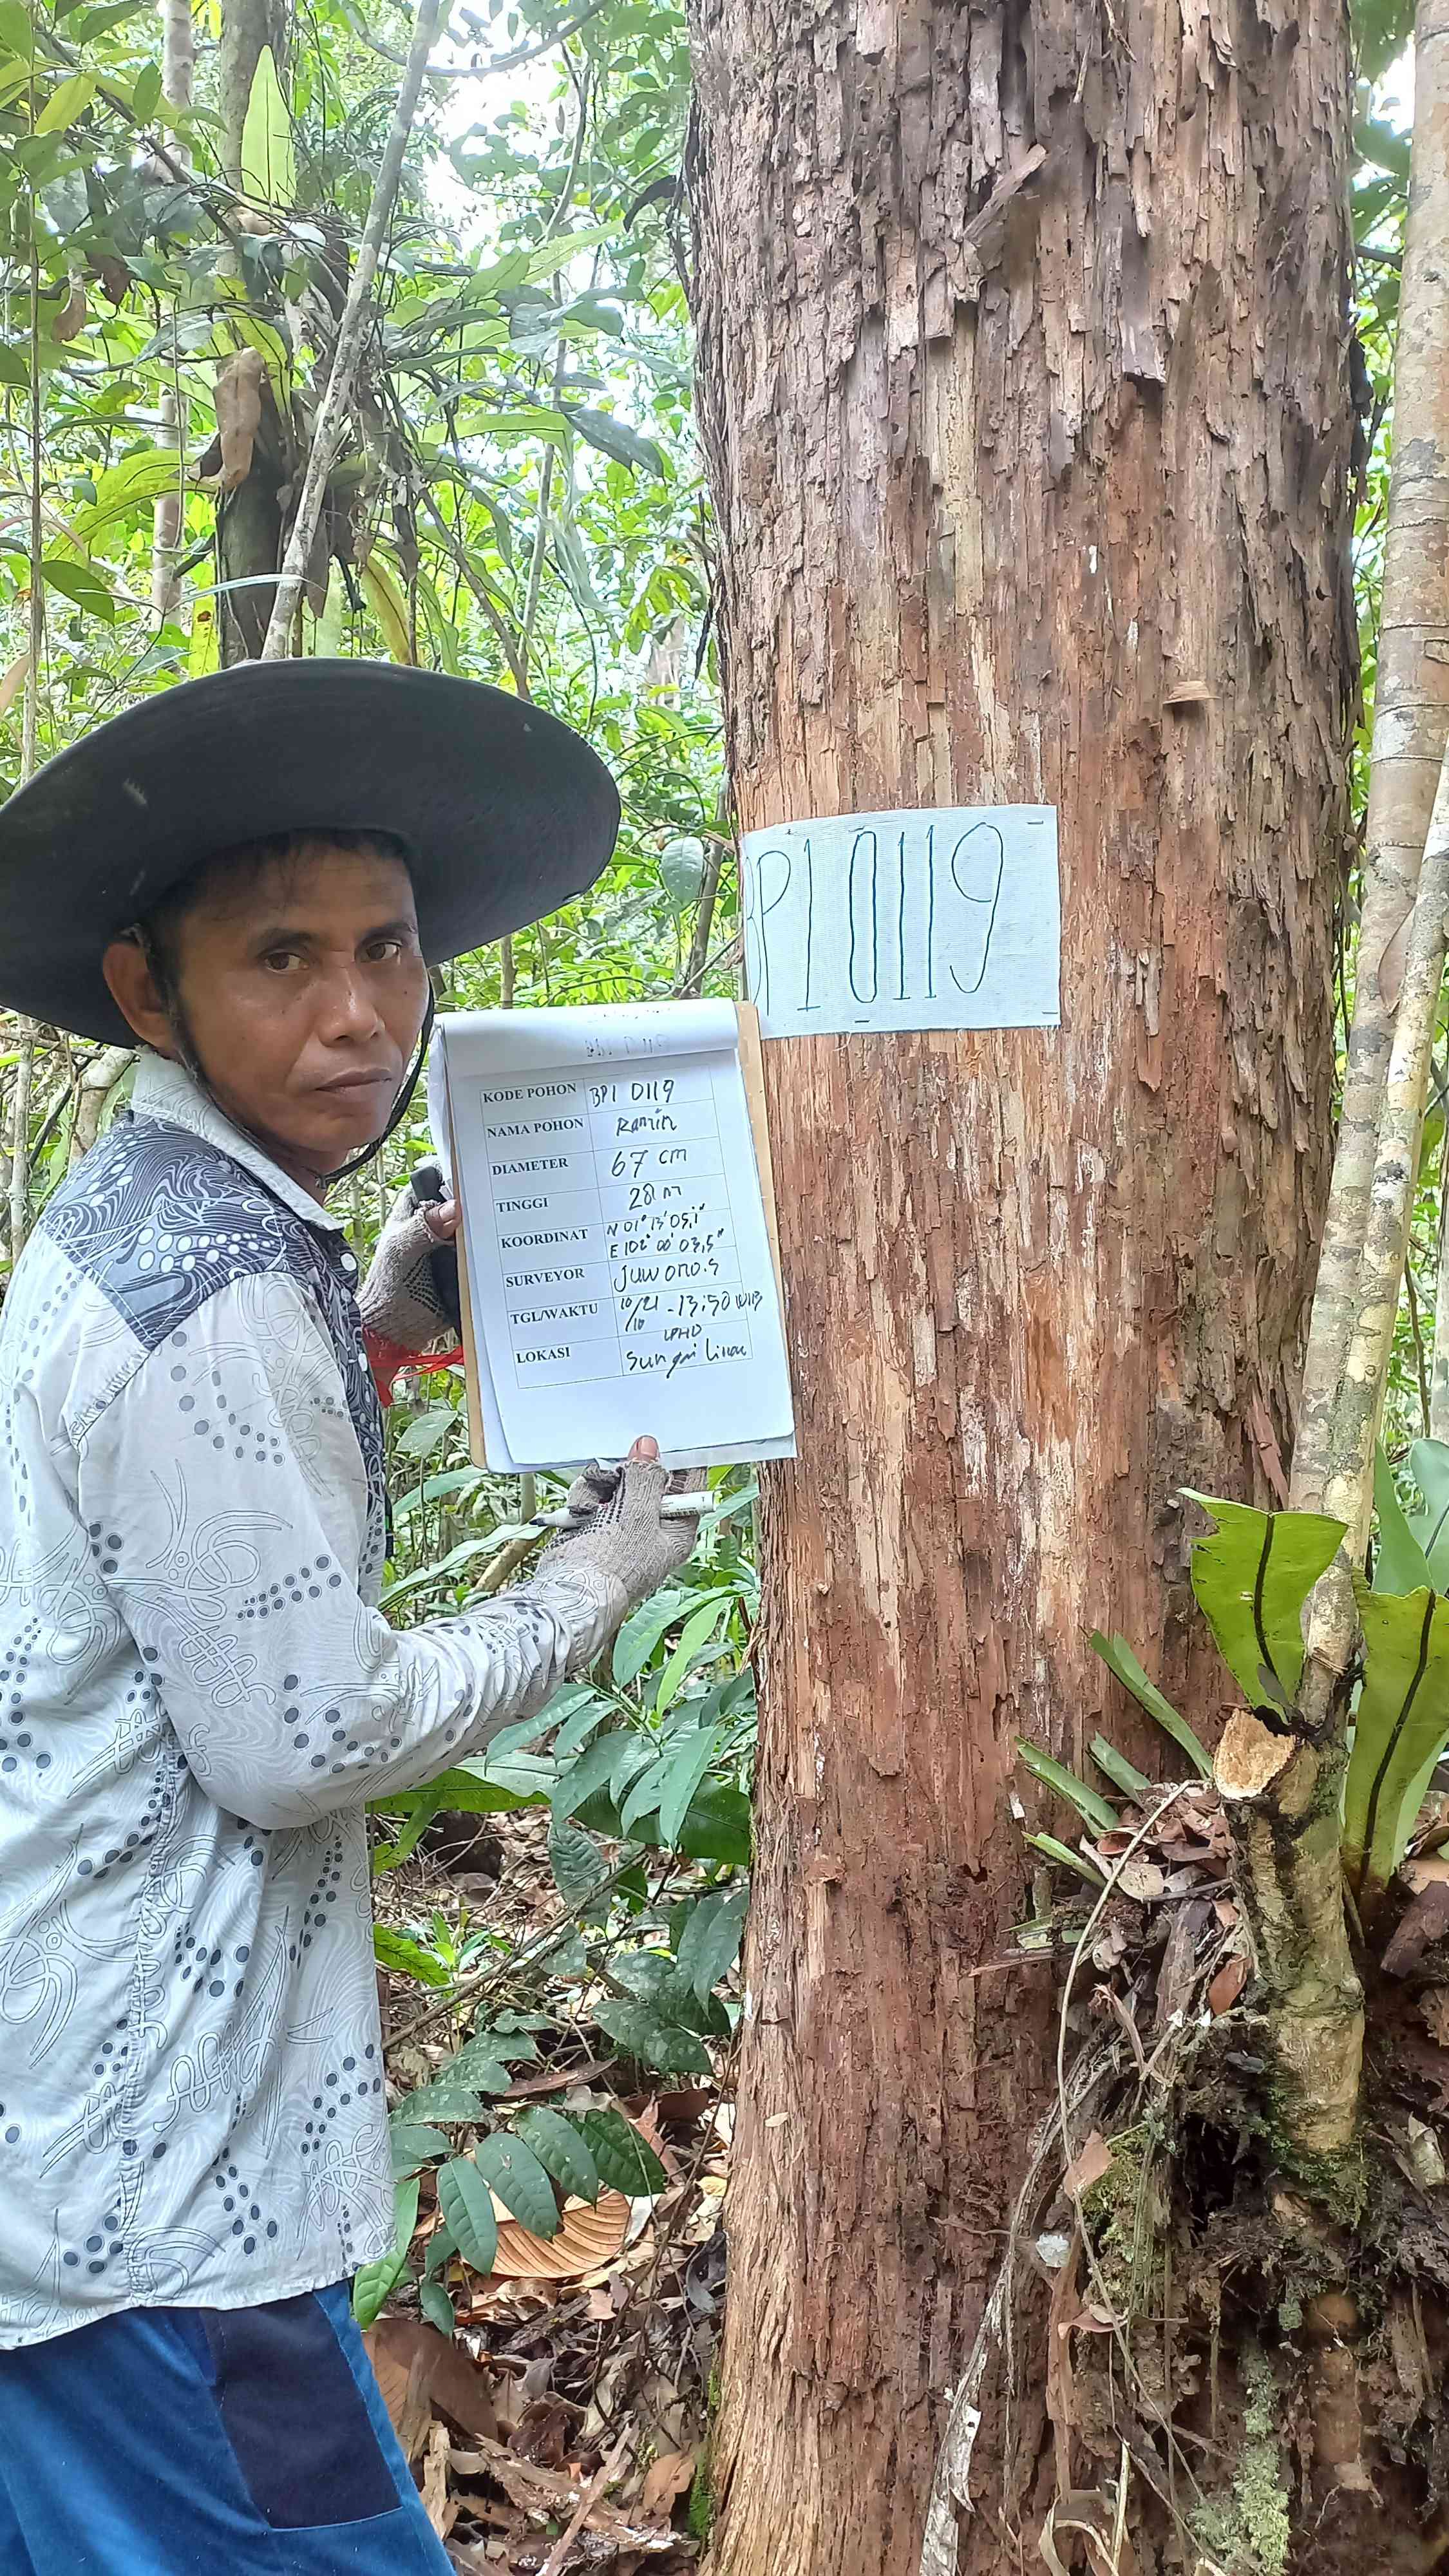 BP1 0119
KODE POHON BP1 0119
NAMA POHON Ramin
DIAMETER 67 cm
TINGGI 28 m
KOORDINAT N 01° 13' 05,1"
E 102° 00' 03,5"
SURVEYOR JUWONO.S
TGL/WAKTU 10/10/21 - 13:50 WIB
LOKASI LPHD
Sungai Linau